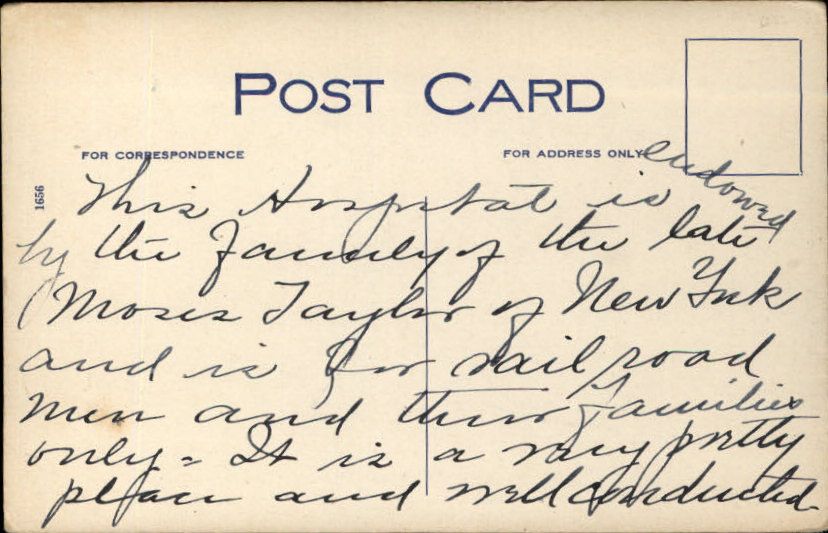 POST CARD
FOR CORRESPONDENCE
FOR ADDRESS ONLY
1656
This Hospital is endowed
by the family of the late
Moses Taylor of New York
and is for rail road
men and their families
only - It is a very pretty
place and well conducted-